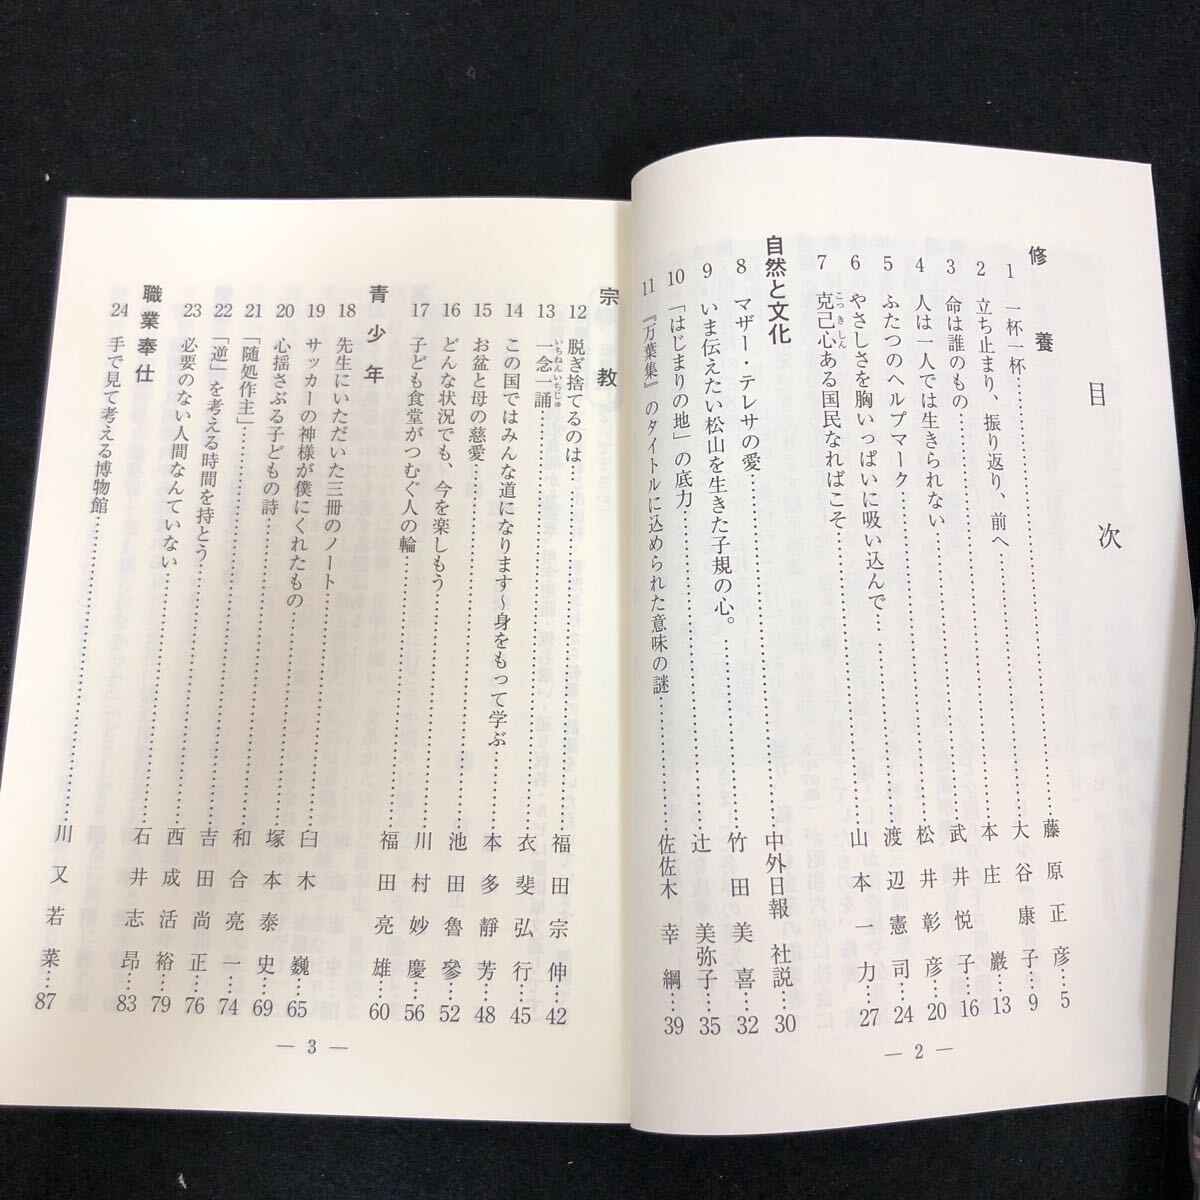 目次
修養
1 一杯一杯……藤原正彦…5
2 立ち止まり、振り返り、前へ……大谷康子…9
3 命は誰のもの……本庄巖…13
4 人は一人では生きられない……武井悦子…16
5 ふたつのヘルプマーク……松井彰彦…20
6 やさしさを胸いっぱいに吸い込んで……渡辺憲司…24
7 克己心ある国民なればこそ……山本一力…27
こっきしん
自然と文化
8 マザー・テレサの愛……中外日報 社説…30
9 いま伝えたい松山を生きた子規の心。……竹田美喜…32
10 「はじまりの地」の底力……辻美弥子…35
11 『万葉集』のタイトルに込められた意味の謎……佐佐木幸綱…39
― 2 ―
宗教
12 脱ぎ捨てるのは……福田宗伸…42
13 一念一誦……衣斐弘行…45
いちねんいちじゅ
14 この国ではみんな道になります～身をもって学ぶ……本多靜芳…48
15 お盆と母の慈愛……池田魯參…52
16 どんな状況でも、今を楽しもう……川村妙慶…56
17 子ども食堂がつむぐ人の輪……福田亮雄…60
青少年
18 先生にいただいた三冊のノート……臼木巍…65
19 サッカーの神様が僕にくれたもの……塚本泰史…69
20 心揺さぶる子どもの詩……和合亮一…74
21 「随処作主」……吉田尚正…76
22 「逆」を考える時間を持とう……西成活裕…79
23 必要のない人間なんていない……石井志昂…83
職業奉仕
24 手で見て考える博物館……川又若菜…87
― 3 ―